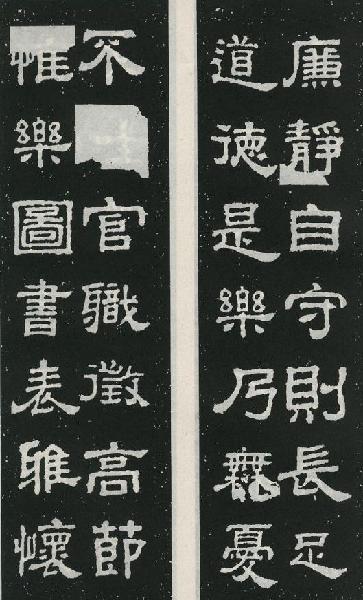 廉靜自守則長足
道德是樂乃無憂
不官職徵高節
惟樂圖書表雅懷